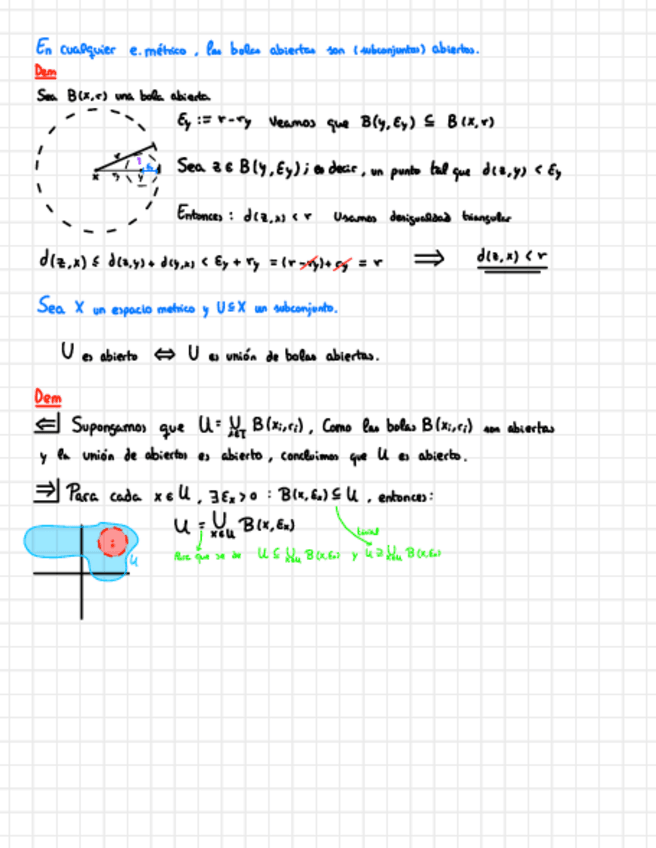 En cualquier e. métrico, las bolas abiertas son (subconjuntos) abiertos.
Dem
Sea B(x,r) una bola abierta
εy := r-ry Veamos que B(y,εy) ⊆ B(x,r)
Sea z ∈ B(y,εy); es decir, un punto tal que d(z,y) < εy
Entonces: d(z,x) < r Usamos desigualdad triangular
d(z,x) ≤ d(z,y) + d(y,x) < εy + ry = (r-ry)+ry = r ⟹ d(z,x) < r
Sea X un espacio metrico y U⊆X un subconjunto.
U es abierto ⟺ U es unión de bolas abiertas.
Dem
⇐| Supongamos que U = ⋃ B(xi,ri), Como las bolas B(xi,ri) son abiertas
y la unión de abiertos es abierto, concluimos que U es abierto.
⇒| Para cada x∈U, ∃εx>0 : B(x,εx) ⊆ U, entonces:
U = ⋃x∈U B(x,εx)
Para que se de U ⊆ ⋃x∈U B(x,εx) y U ⊇ ⋃x∈U B(x,εx)
U